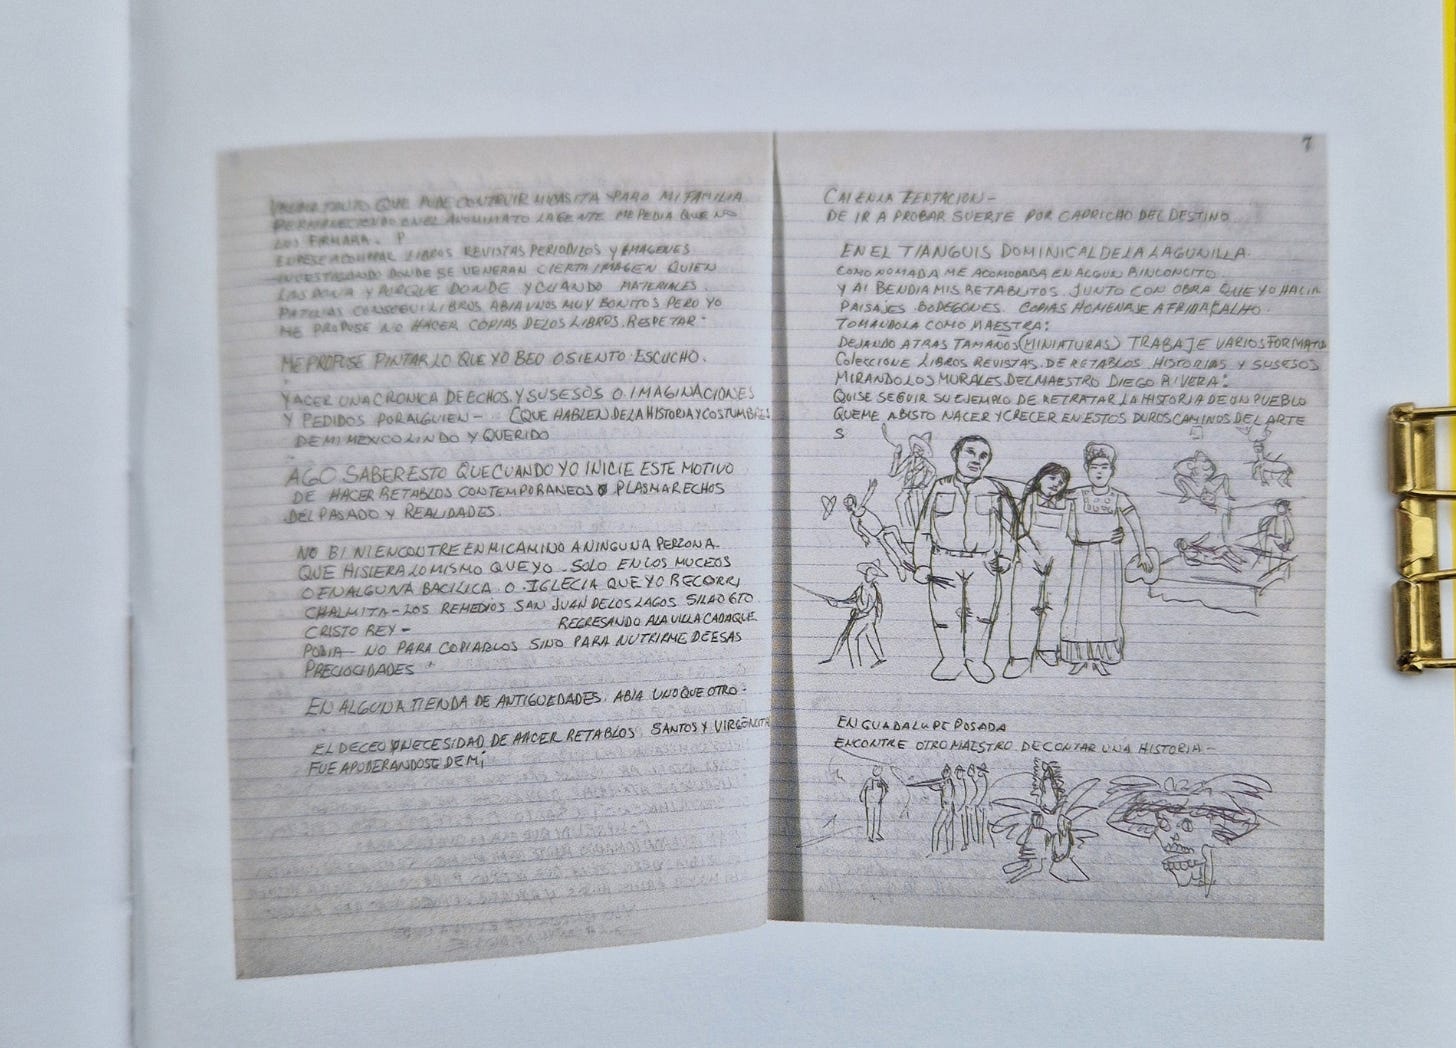 TANTO QUE PUDE CONTRUIR MICASITA PARA MI FAMILIA
PERMANECIENDO EN EL ANONIMATO LA GENTE ME PEDIA QUE NO
LOS FIRMARA. P
EMPESE A COMPRAR LIBROS REVISTAS PERIODICOS Y IMAGENES
INVESTIGANDO DONDE SE VENERAN CIERTA IMAGEN QUIEN
LAS DONA Y PORQUE DONDE Y CUANDO MATERIALES.
CONSEGUI LIBROS. ABIA UNOS MUY BONITOS PERO YO
ME PROPUSE NO HACER COPIAS DELOS LIBROS. RESPETAR-
ME PROPUSE PINTAR LO QUE YO BEO O SIENTO. ESCUCHO.
Y ACER UNA CRONICA DE ECHOS. Y SUSESOS O. IMAGINACIONES
Y PEDIDOS POR ALGUIEN- (QUE HABLEN DE LA HISTORIA Y COSTUMBRES
DE MI MEXICO LINDO Y QUERIDO
AGO SABER ESTO QUE CUANDO YO INICIE ESTE MOTIVO
DE HACER RETABLOS CONTEMPORANEOS O PLASMAR ECHOS
DEL PASADO Y REALIDADES.
NO BI NI ENCONTRE EN MI CAMINO A NINGUNA PERZONA.
QUE HISIERA LO MISMO QUE YO. SOLO EN LOS MUCEOS
O EN ALGUNA BACILICA. O. IGLECIA QUE YO RECORRI
CHALMITA-LOS REMEDIOS SAN JUAN DE LOS LAGOS SILAO GTO
CRISTO REY- REGRESANDO A LA VILLA CADA QUE
PODIA- NO PARA COPIARLOS SINO PARA NUTRIRME DE ESAS
PRECIOCIDADES
EN ALGUNA TIENDA DE ANTIGUEDADES. ABIA UNO QUE OTRO-
EL DECEO Y NECESIDAD DE AACER RETABLOS. SANTOS Y VIRGENCITA
FUE APODERANDOSE DE MI
7
CAI EN LA TENTACION-
DE IR A PROBAR SUERTE POR CAPRICHO DEL DESTINO
EN EL TIANGUIS DOMINICAL DE LA LAGUNILLA.
COMO NOMADA ME ACOMODABA EN ALGUN RINCONCITO
Y AI BENDIA MIS RETABLITOS. JUNTO CON OBRA QUE YO HACIA
PAISAJES. BODEGONES. COPIAS HOMENAJE A FRIDA CALHO.
TOMANDOLA COMO MAESTRA:
DEJANDO ATRAS TAMAÑOS (MINIATURAS) TRABAJE VARIOS FORMATO
COLECCIONE LIBROS REVISTAS. DE RETABLOS HISTORIAS Y SUSESOS
MIRANDO LOS MURALES. DEL MAESTRO DIEGO RIVERA:
QUISE SEGUIR SU EJEMPLO DE RETRATAR LA HISTORIA DE UN PUEBLO
QUE ME A BISTO NACER Y CRECER EN ESTOS DUROS CAMINOS DEL ARTE
S
EN GUADALUPE POSADA
ENCONTRE OTRO MAESTRO DE CONTAR UNA HISTORIA-